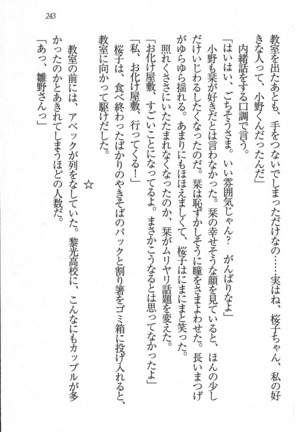 243
教室を出たあとも、手をつないでしまっただけなの……実はね、桜子ちゃん、私の好
きな人って、小野くんだったんだ」
内緒話をする口調で言う。
「はいはい、ごちそうさま。いい雰囲気じゃん？　がんばりなよ」
小野も栞が好きだとは言わなかった。栞の幸せそうな顔を見ていると、ほんの少し
だけいじわるしたくなったのだ。栞は恥ずかしそうに瞳をさまよわせた。長いまつげ
がゆらゆら揺れる。あまりにもほほえましくて、桜子はにまにまと笑った。
照れくささにいたたまれなくなったのか、栞がムリヤリ話題を変えた。
「お化け屋敷、すごいことになってるよ。まさかこうなるとは思ってなかったよ」
「私、お化け屋敷、行ってくる！」
桜子は、食べ終わったばかりのやきそばのパックと割り箸をゴミ箱に投げ入れると、
教室に向かって駆けだした。
☆
教室の前には、アベックが列をなしていた。黎光高校に、こんなにもカップルが多
かったのかとあきれてしまうほどの人数だ。
「あっ、雛野さんっ」